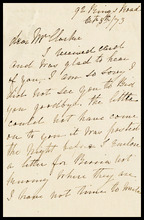 92 Kings Road
Oct 8th/73
Dear Mr Clarke
I received card
and was glad to hear
of you, I am so sorry I
did not see you to bid
you goodbye. The little
could not have come
on to you it was posted
the night before I enclose
a letter for Bessie not
knowing where they are
I have not time to write